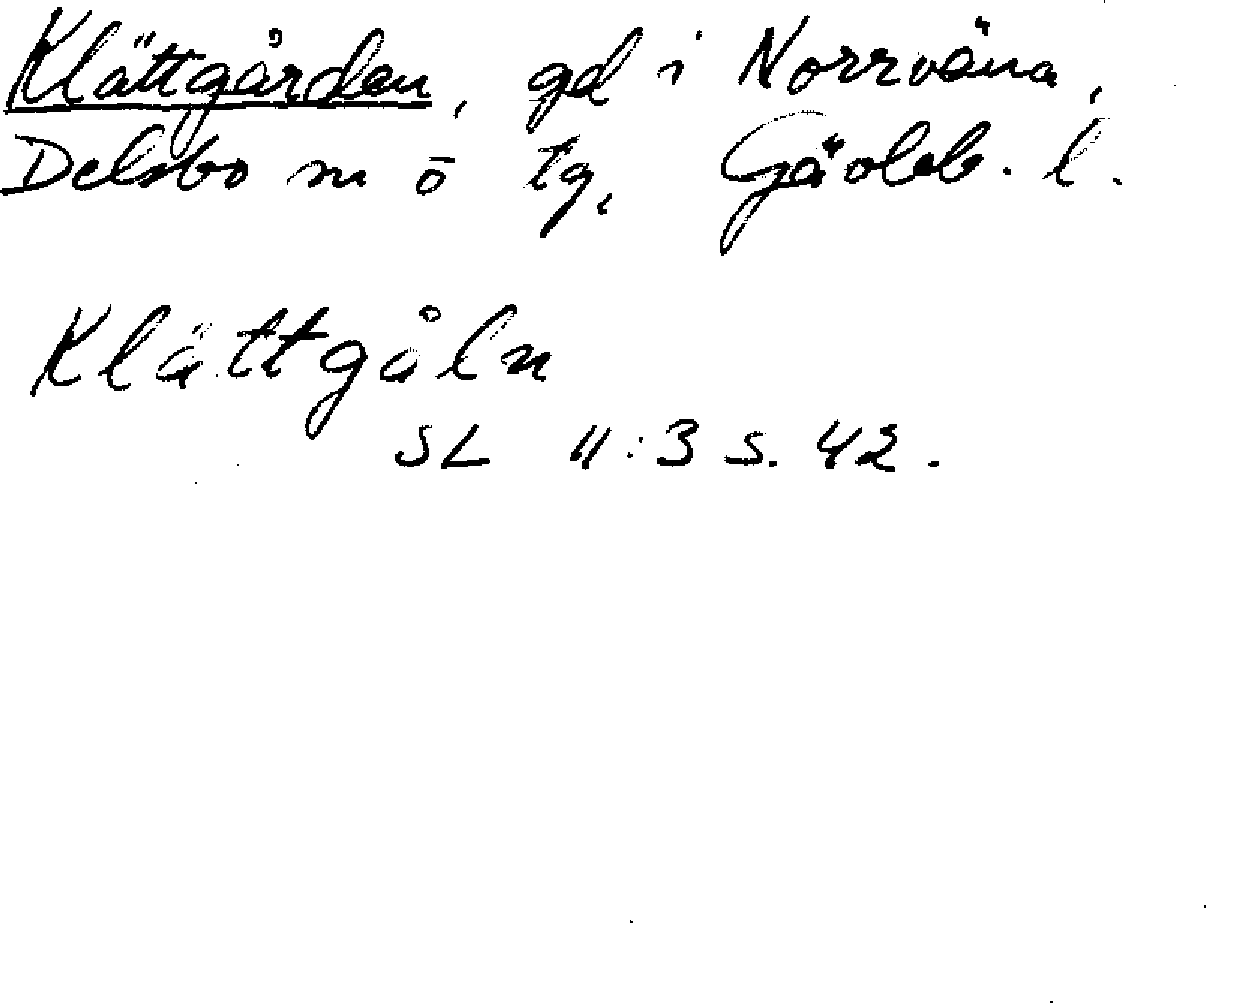 Klättgården, gd i Norrväna,
Delsbo m ō tg, Gävleb. l.
Klättgåln
SL 11:3 s. 42.